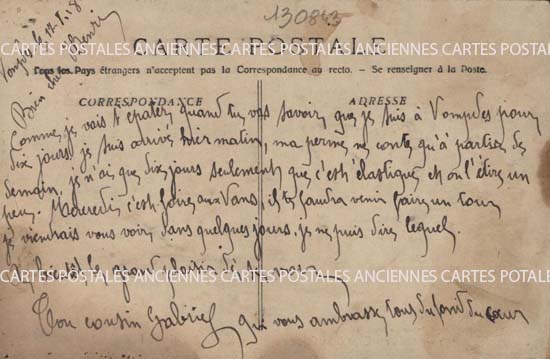 130843
Vompdes le 12.1.18
Bien cher Henri
CARTE POSTALE
Tous les Pays étrangers n'acceptent pas la Correspondance au recto. - Se renseigner à la Poste.
CORRESPONDANCE
ADRESSE
Comme je vais t'epater, quand tu vas savoir que je suis à Vompdes pour
dix jours, je suis arrivé hier matin, ma perme ne conte qu'à partir de
demain, je n'ai que dix jours seulement, que c'est élastique, et on l'étire un
peu. Mercredi c'est foire aux Vans, il te faudra venir faire un tour
je viendrais vous voir, dans quelques jours, je ne puis dire lequel.
CARTES POSTALES ANCIENNES CARTES POSTALES ANCIENNES CARTES POSTALES
bientôt le grand plaisir de te voir
Ton cousin Gabriel qui vous embrasse tous du fond du cœur